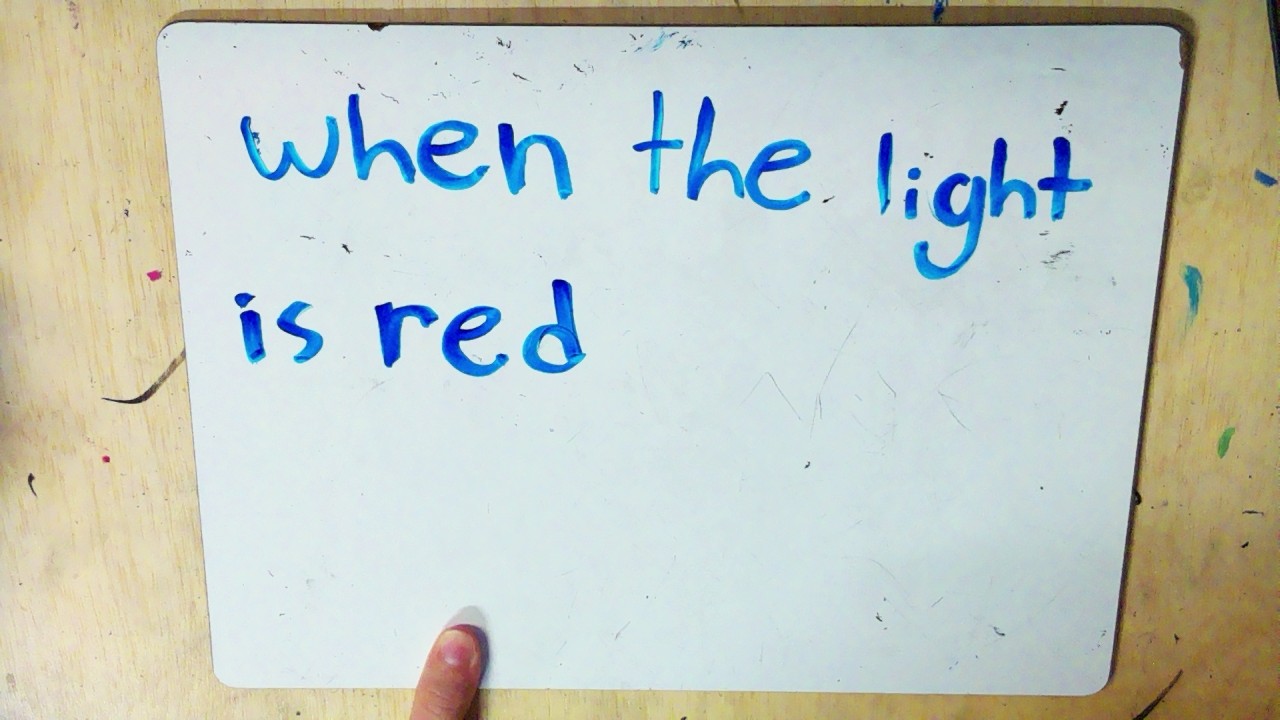 when the light
is red